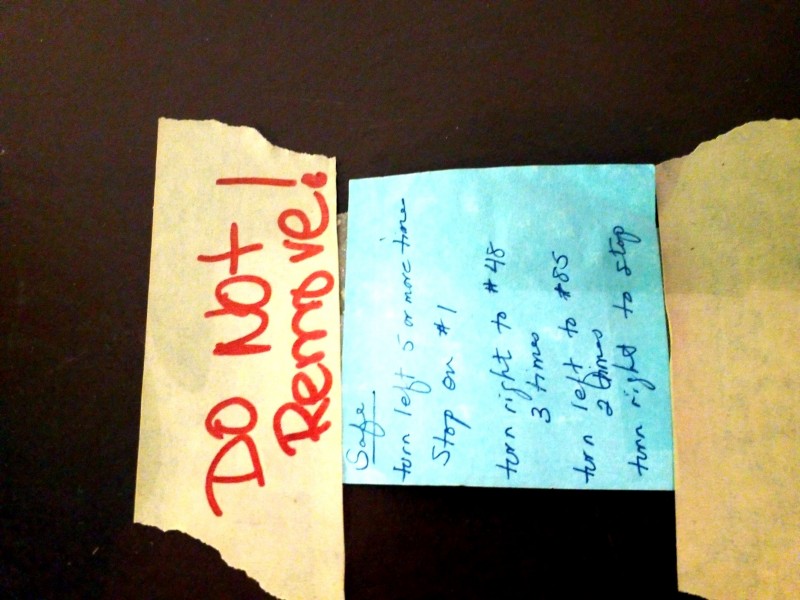 DO Not
Remove!
Safe
turn left 5 or more time
Stop on #1
turn right to #48
3 times
turn left to #85
2 times
turn right to stop